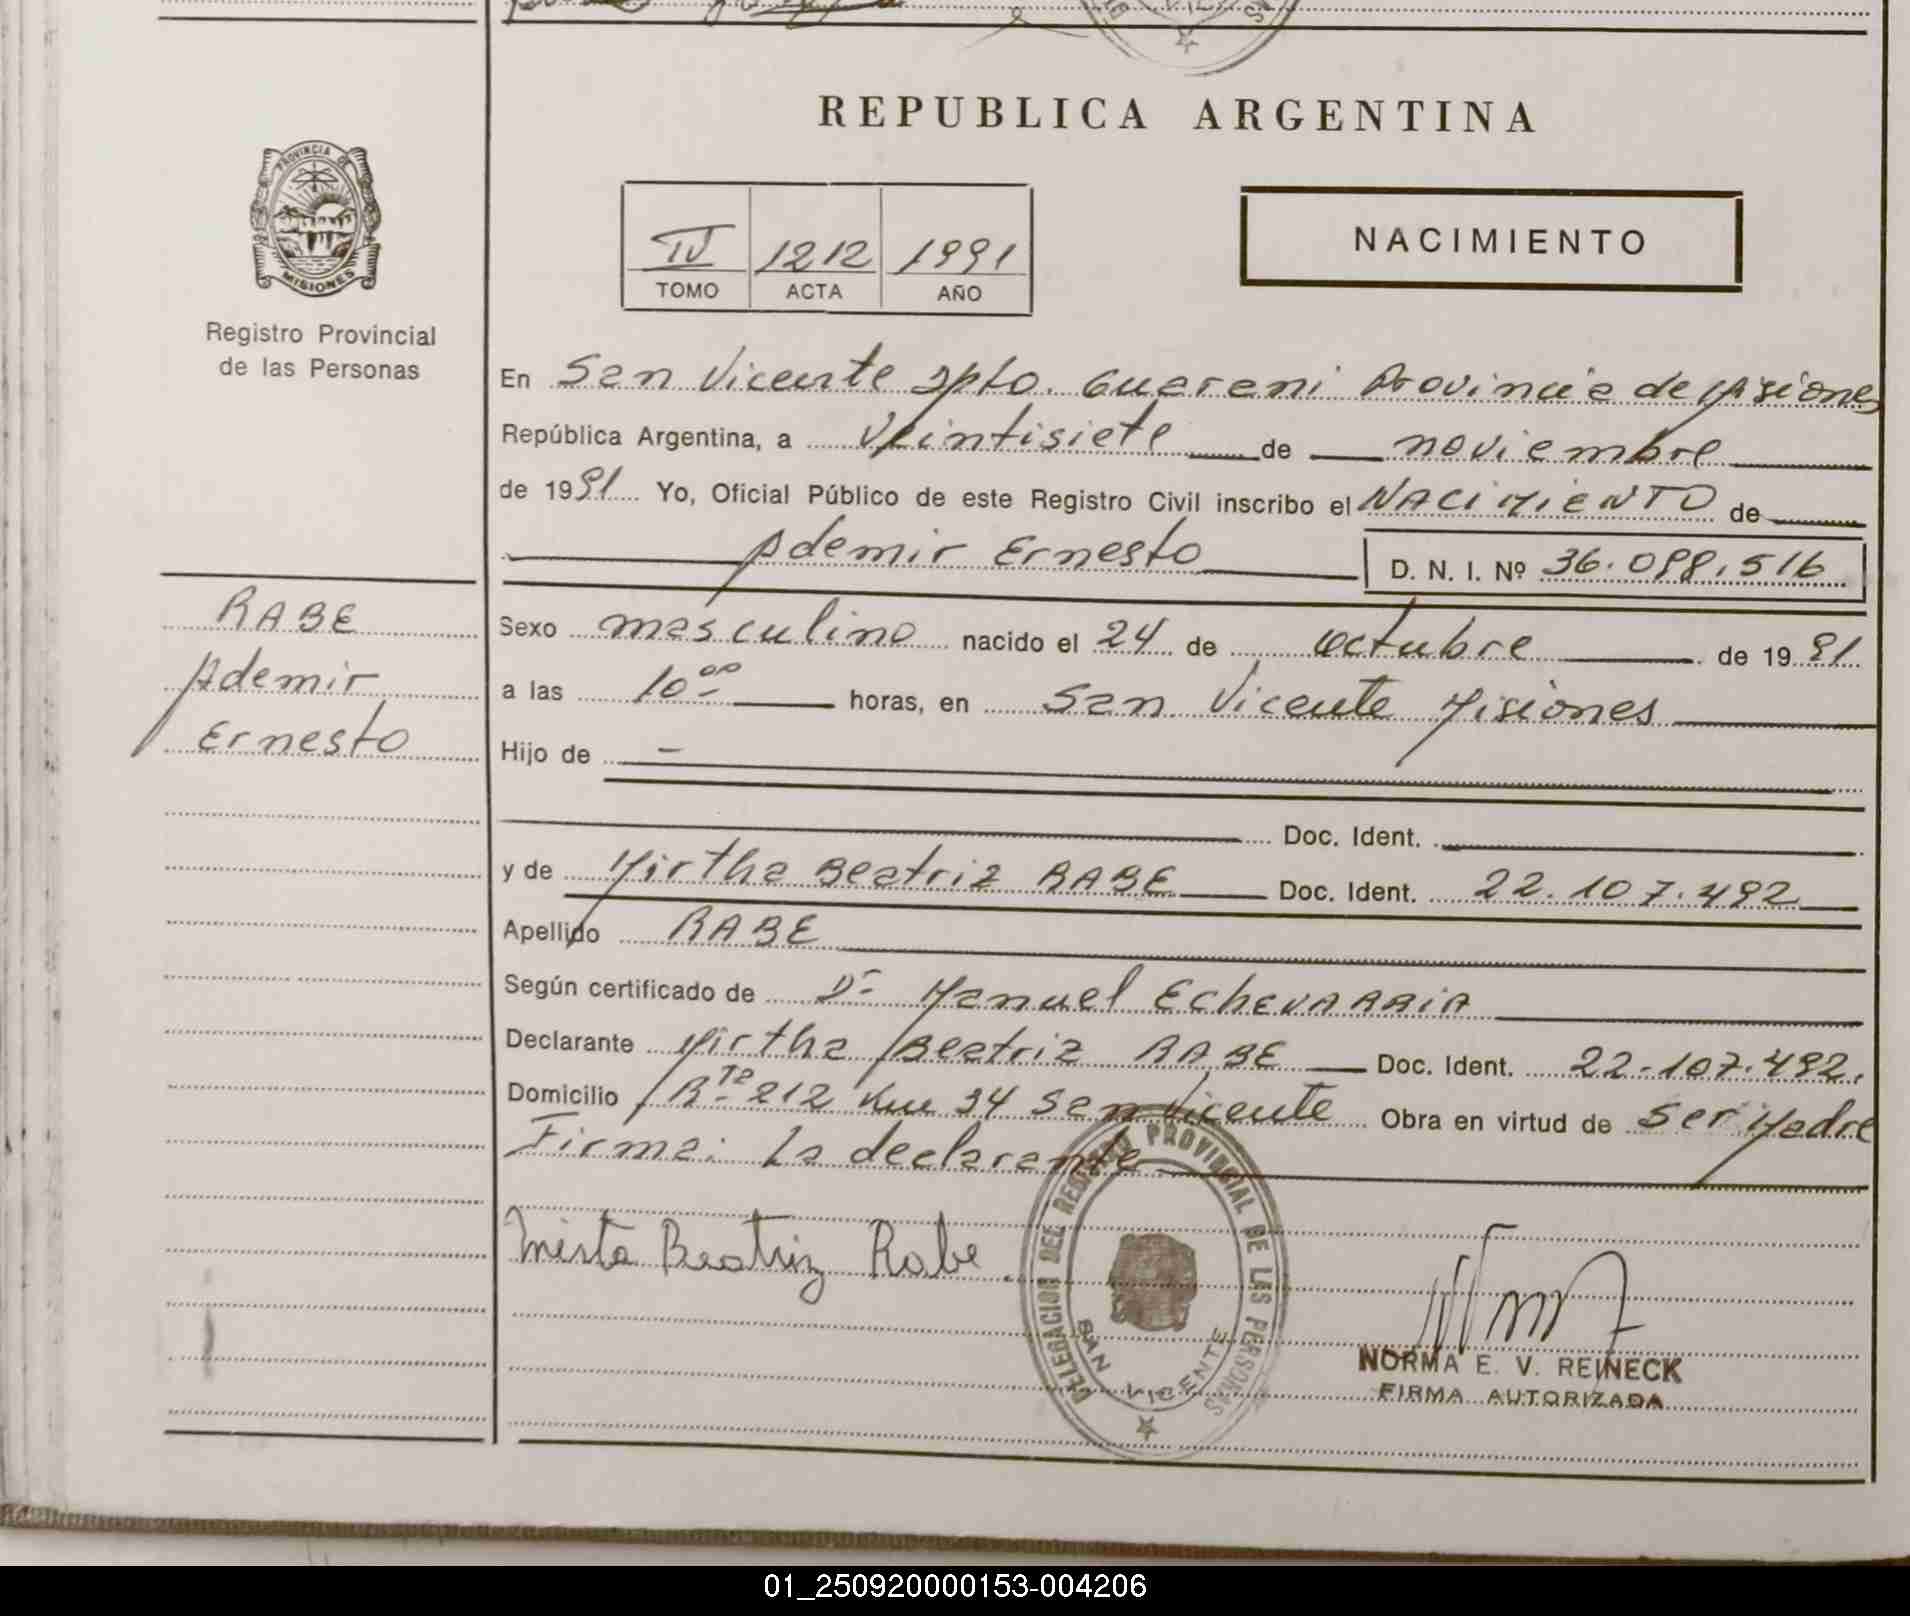 REPUBLICA ARGENTINA
PROVINCIA DE
MISIONES
Registro Provincial
de las Personas
IV 1212 1991
TOMO ACTA AÑO
NACIMIENTO
En San Vicente Dpto. Guarani Provincia de Misiones
República Argentina, a Veintisiete de noviembre
de 1991 Yo, Oficial Público de este Registro Civil inscribo el NACIMIENTO de
Ademir Ernesto D. N. I. Nº 36.099.516
RABE
Ademir
Ernesto
Sexo masculino nacido el 24 de octubre de 1991
a las 10 00 horas, en San Vicente Misiones
Hijo de -
Doc. Ident.
y de Mirtha Beatriz RABE Doc. Ident. 22.107.492
Apellido RABE
Según certificado de Dr Manuel EchevARRiA
Declarante Mirtha Beatriz RABE Doc. Ident. 22.107.492.
Domicilio Rta 212 San Vicente Obra en virtud de ser Madre
Firma: La declarante
Mirta Beatriz Rabe
DELEGACION DEL REGISTRO PROVINCIAL DE LAS PERSONAS
SAN VICENTE
NORMA E. V. REINECK
FIRMA AUTORIZADA
01_250920000153-004206